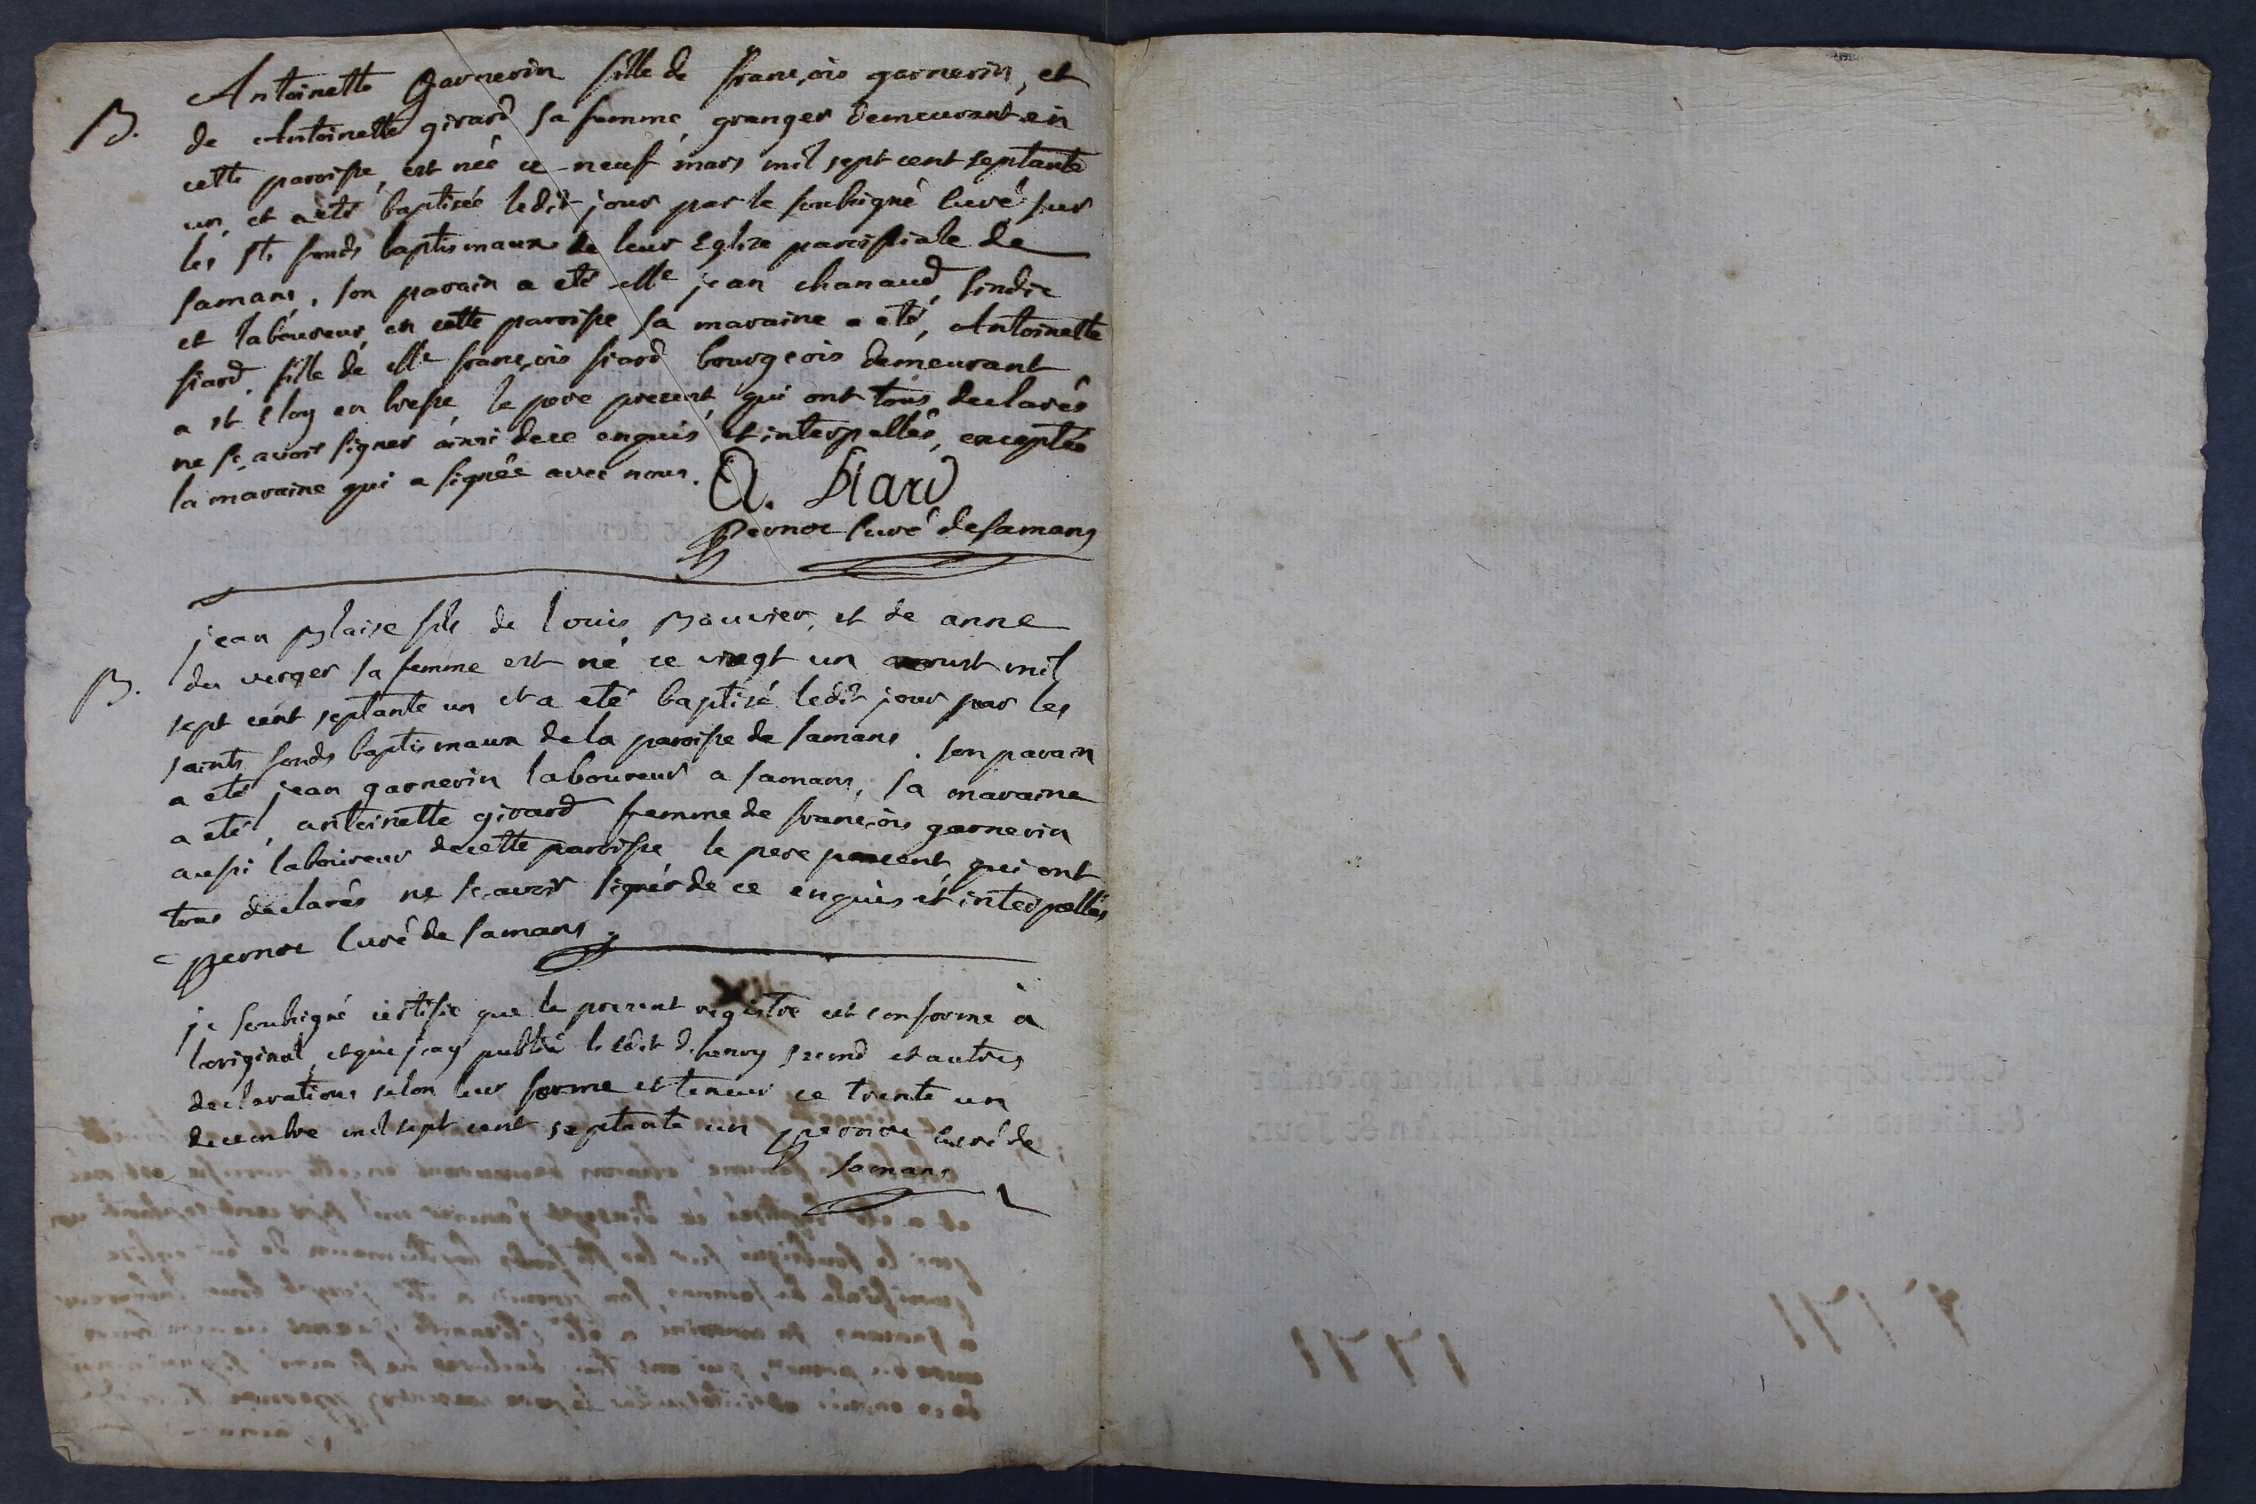 Antoinette Garnerin fille de françois garnerin, et
B. de Antoinette girard sa femme, granger demeurant en
cette paroisse, est née ce neuf mars mil sept cent septante
un, et a eté baptisée ledit jour par le soubsigné Curé sur
les sts fonds baptismaux de leur Eglise paroissiale de
samans, son parain a eté Me jean chanaud, sindic
et laboureur, en cette paroisse sa maraine a eté, Antoinette
siard, fille de Me françois siard bourgeois demeurant
a st Eloy en bresse, le pere present, qui ont tous declarés
ne sçavoir signer ainsi de ce enquis et interpellés, exceptée
la maraine qui a signée avec nous. A. Siard
Pernoe Curé de samans
jean Blaise fils de louis Bouvier, et de anne
B. du verger sa femme est né ce vingt un aoust mil
sept cent septante un et a eté baptisé ledit jour sur les
saints fonds baptismaux de la paroisse de samans. son parain
a eté jean garnerin laboureur a samans, sa maraine
a eté, antoinette girard femme de françois garnerin
aussi laboureur de cette paroisse, le pere present, qui ont
tous declarés ne sçavoir signer de ce enquis et interpellés
Pernoe Curé de samans.
je soubsigné certifie que le present registre est conforme à
l'original, et que j'ay publié l'edit d'henry second et autres
declarations selon leur forme et teneur ce trente un
decembre mil sept cent septante un Pernoe Curé de
samans
1771
1771